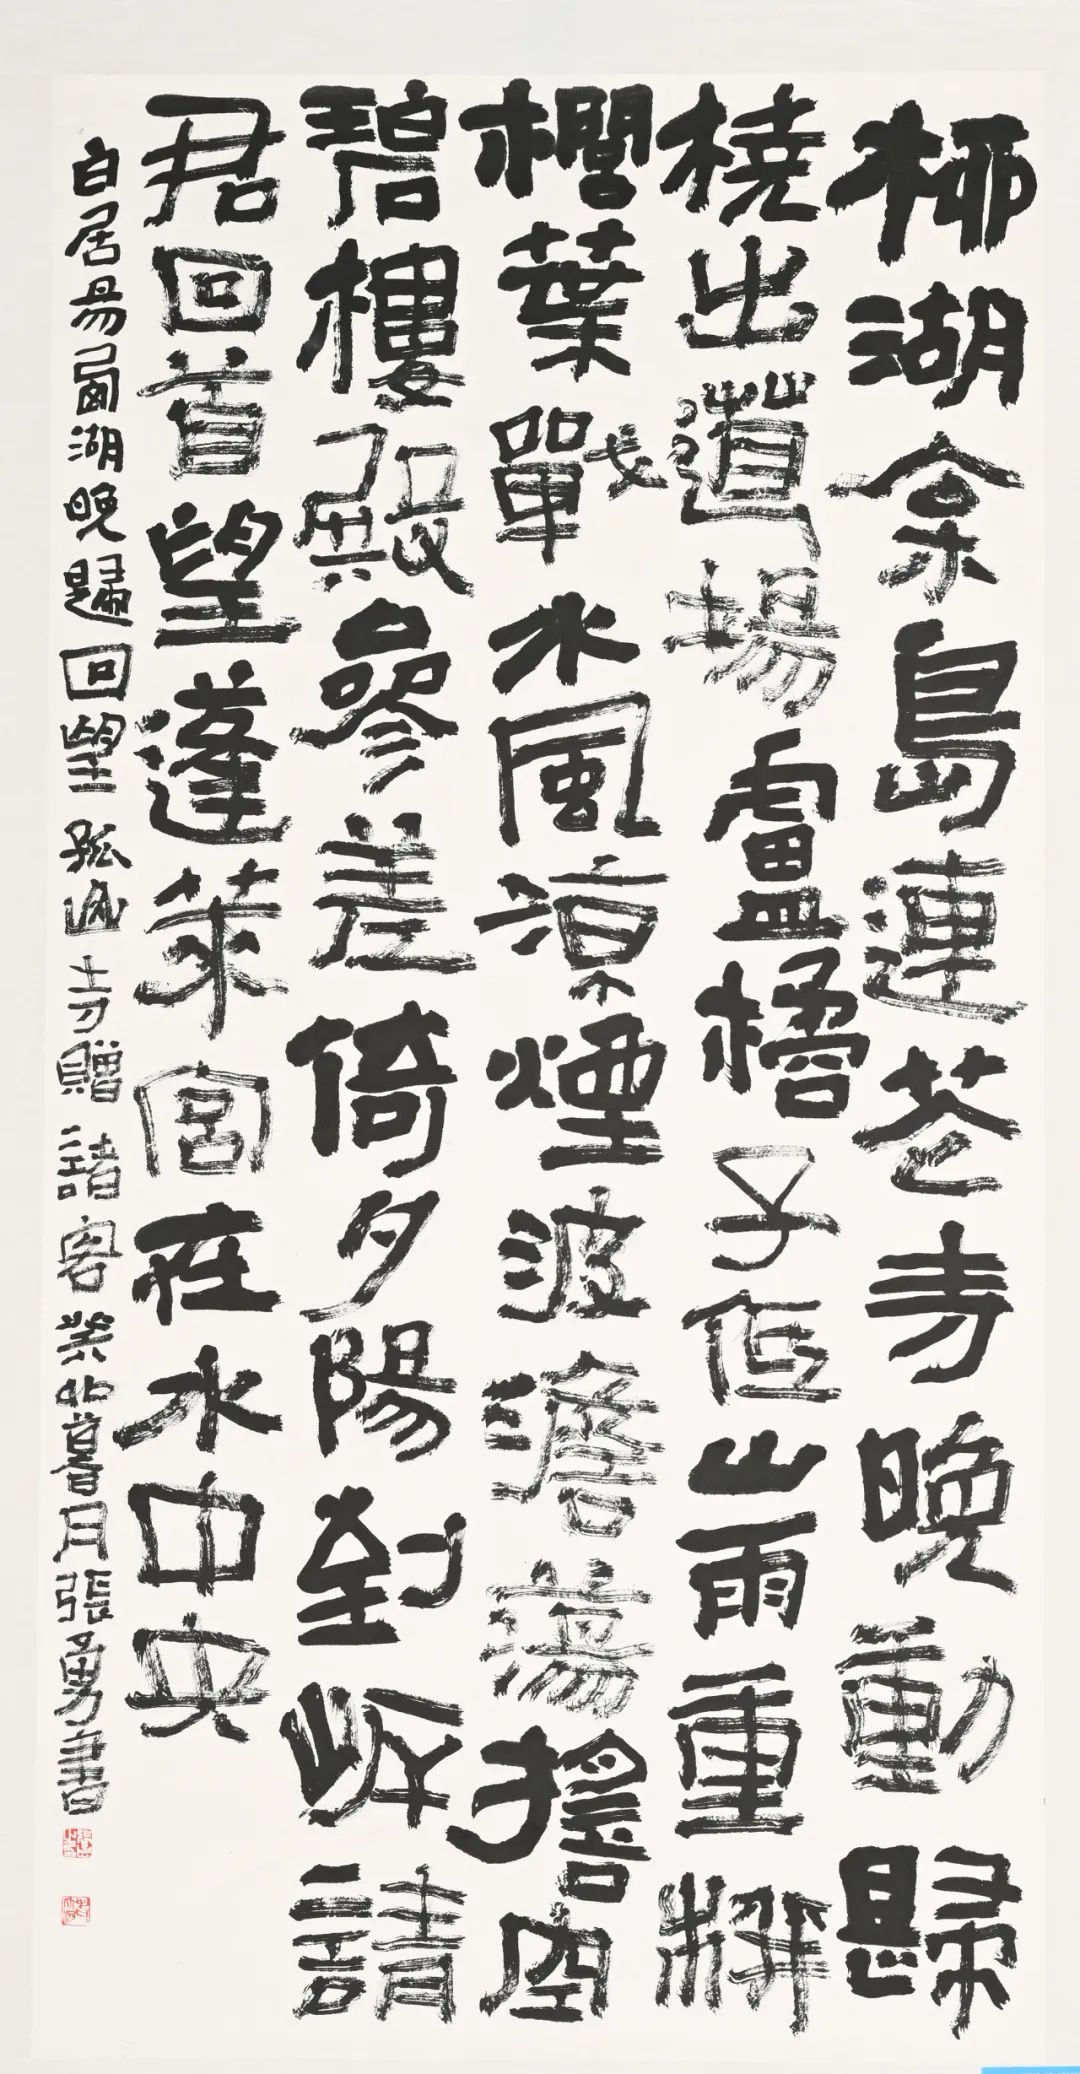 柳湖枀島連花寺晚動歸
橈出道場盧橘子低山雨重栟
櫚葉戰水風凉煙波澹蕩搖空
碧樓殿參差倚夕陽到岸請
君回首望蓬萊宮在水中央
白居易西湖晚歸回望孤山寺贈諸客癸卯月張勇書